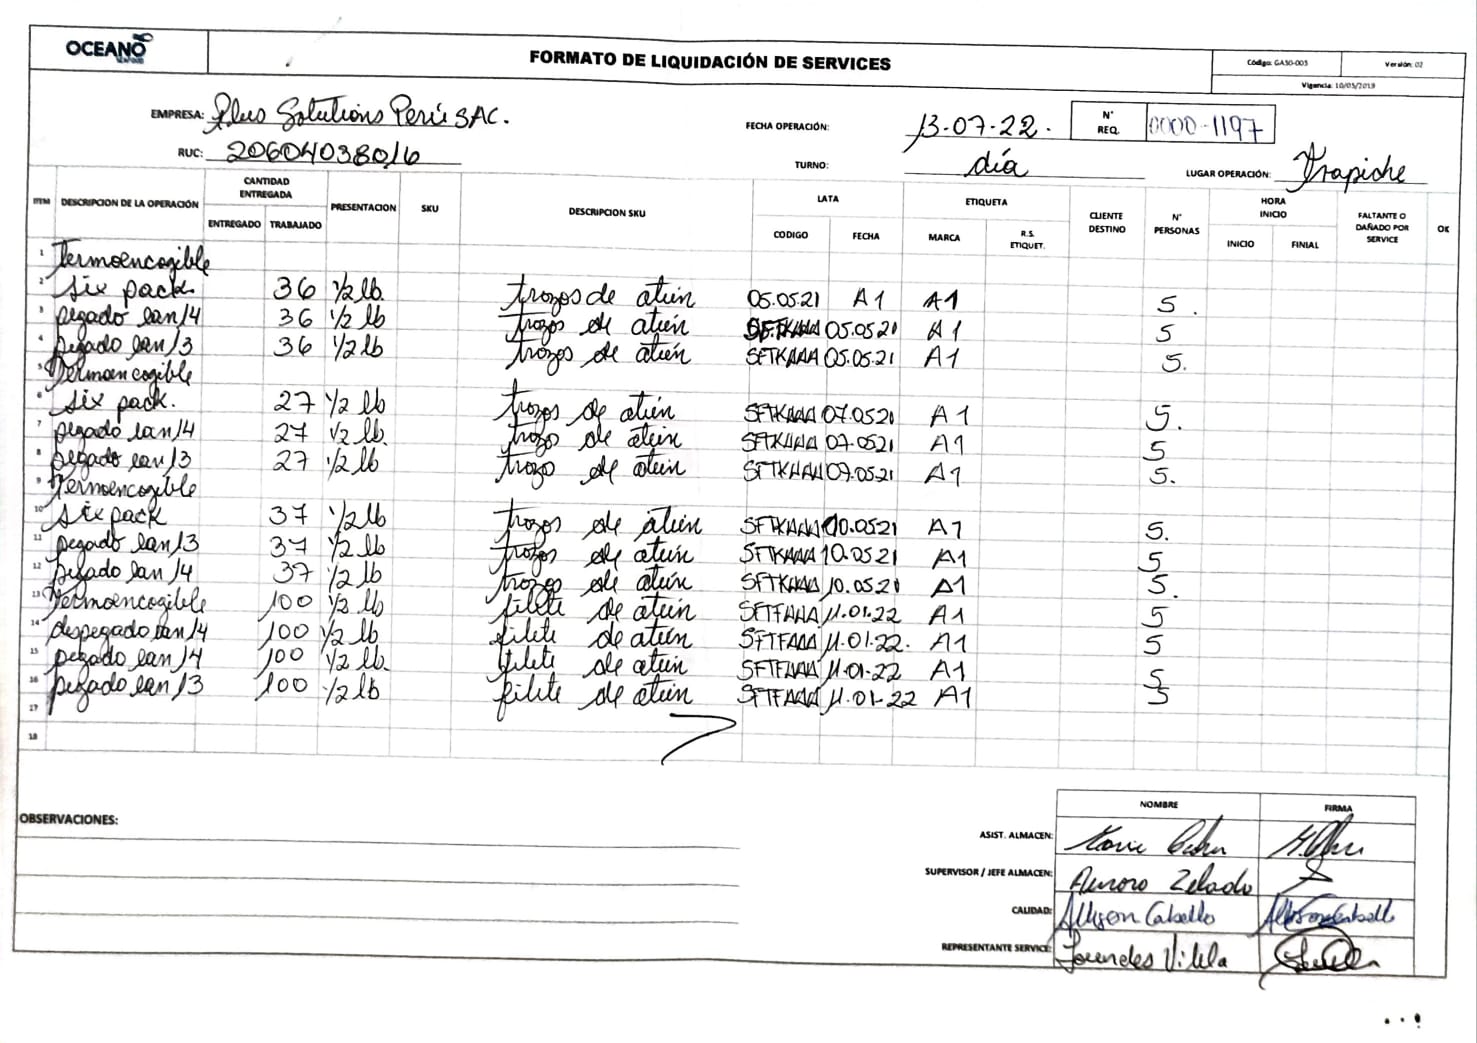 OCEANO
SEAFOOD
FORMATO DE LIQUIDACIÓN DE SERVICES
Código: GASO-003
Versión: 02
Vigencia: 10/05/2019
EMPRESA: Plus Solutions Perú SAC.
FECHA OPERACIÓN: 13-07-22.
N° REQ. 0000-1197
RUC: 20604038016
TURNO: día
LUGAR OPERACIÓN: Trapiche
ITEM DESCRIPCION DE LA OPERACIÓN CANTIDAD ENTREGADA ENTREGADO TRABAJADO PRESENTACION SKU DESCRIPCION SKU LATA CODIGO FECHA ETIQUETA MARCA R.S. ETIQUET. CLIENTE DESTINO N° PERSONAS HORA INICIO INICIO FINIAL FALTANTE O DAÑADO POR SERVICE OK
1 Termoencogible
2 six pack 36 1/2 lb. trozos de atún 05.05.21 A1 A1 5.
3 pegado lan/4 36 1/2 lb trozos de atún 05.0520 A1 5
4 pegado lan/3 36 1/2 lb trozos de atún SFTKAAA 05.05.21 A1 5.
5 Termoencogible
6 six pack. 27 1/2 lb trozos de atún SFTKAAA 07.0520 A1 5.
7 pegado lan/4 27 1/2 lb. trozo de atún SFTKAAA 07.0521 A1 5
8 pegado lan/3 27 1/2 lb trozo de atún SFTKAAA 07.05.21 A1 5.
9 Termoencogible
10 six pack 37 1/2 lb trozos de atún SFTKAAA 10.0521 A1 5.
11 pegado lan/3 37 1/2 lb trozos de atún SFTKAAA 10.05.21 A1 5
12 pegado lan/4 37 1/2 lb trozos de atún SFTKAAA 10.05.21 A1 5.
13 Termoencogible 100 1/2 lb filete de atún SFTFAAA 11.01.22 A1 5
14 despegado lan/4 100 1/2 lb filete de atún SFTFAAA 11.01.22. A1 5
15 pegado lan/4 100 1/2 lb. filete de atún SFTFAAA 11.01.22 A1 5
16 pegado lan/3 100 1/2 lb filete de atún SFTFAAA 11.01-22 A1 5
17
18
OBSERVACIONES:
NOMBRE FIRMA
ASIST. ALMACEN:
SUPERVISOR / JEFE ALMACEN: Aurora Zelado
CALIDAD: Allyson Cabello Allyson Cabello
REPRESENTANTE SERVICE: Lourdes Vilela